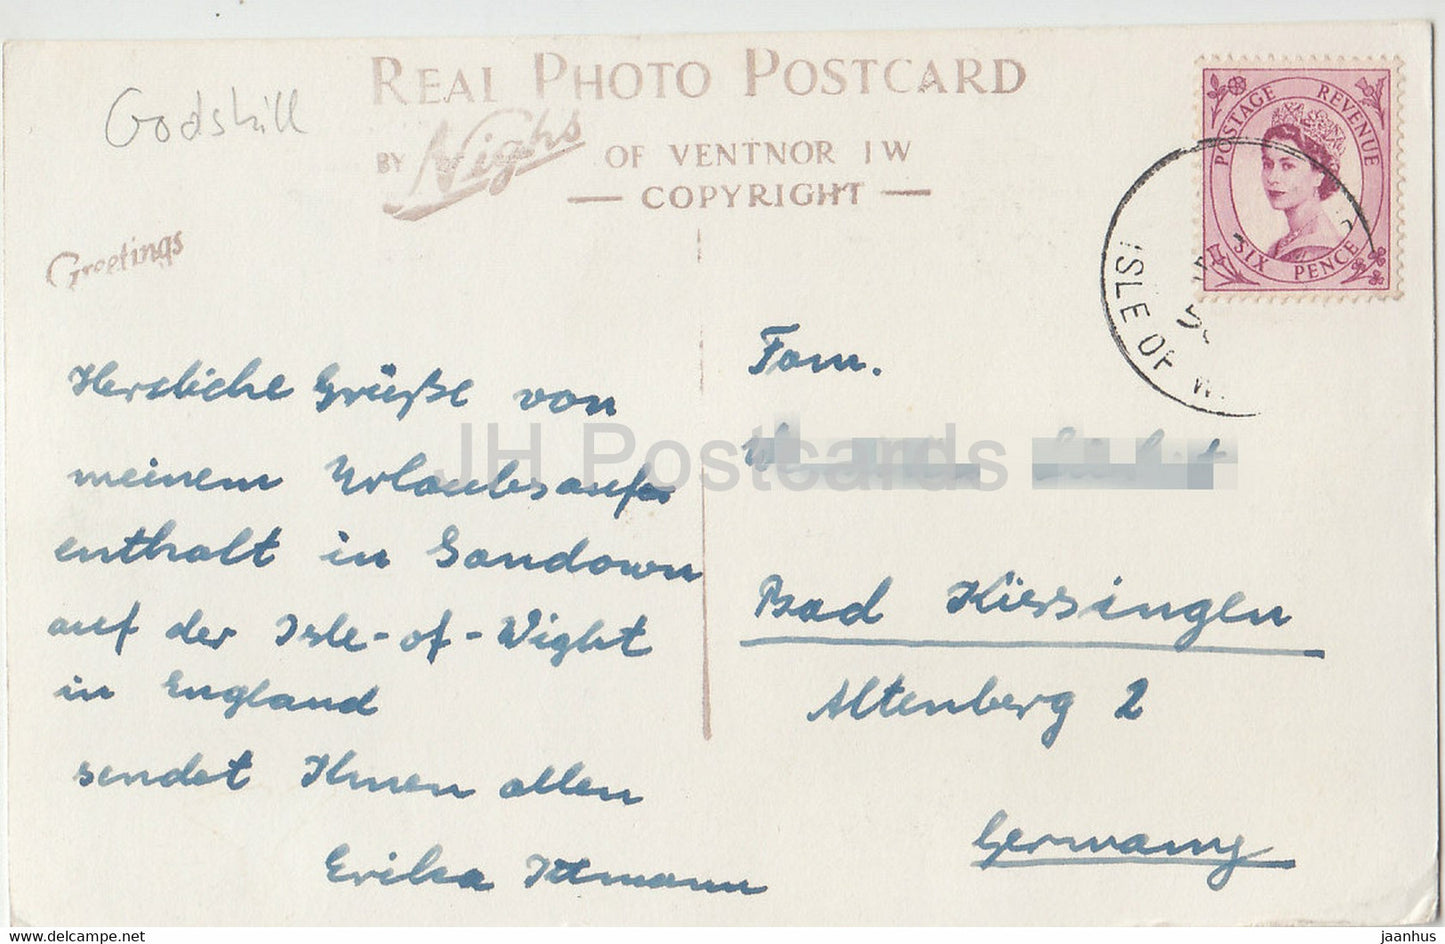 Godshill
REAL PHOTO POSTCARD
BY Nigh's OF VENTNOR I W
— COPYRIGHT —
Greetings
POSTAGE REVENUE
SIX PENCE
ISLE OF W
Herzliche Grüße von
meinem Urlaubsauf-
enthalt in Sandown
auf der Isle-of-Wight
in England
sendet Ihnen allen
Erika Ittmann
Fam.
Bad Kissingen
Altenberg 2
Germany
JH Postcards
www.delcampe.net
jaanhus